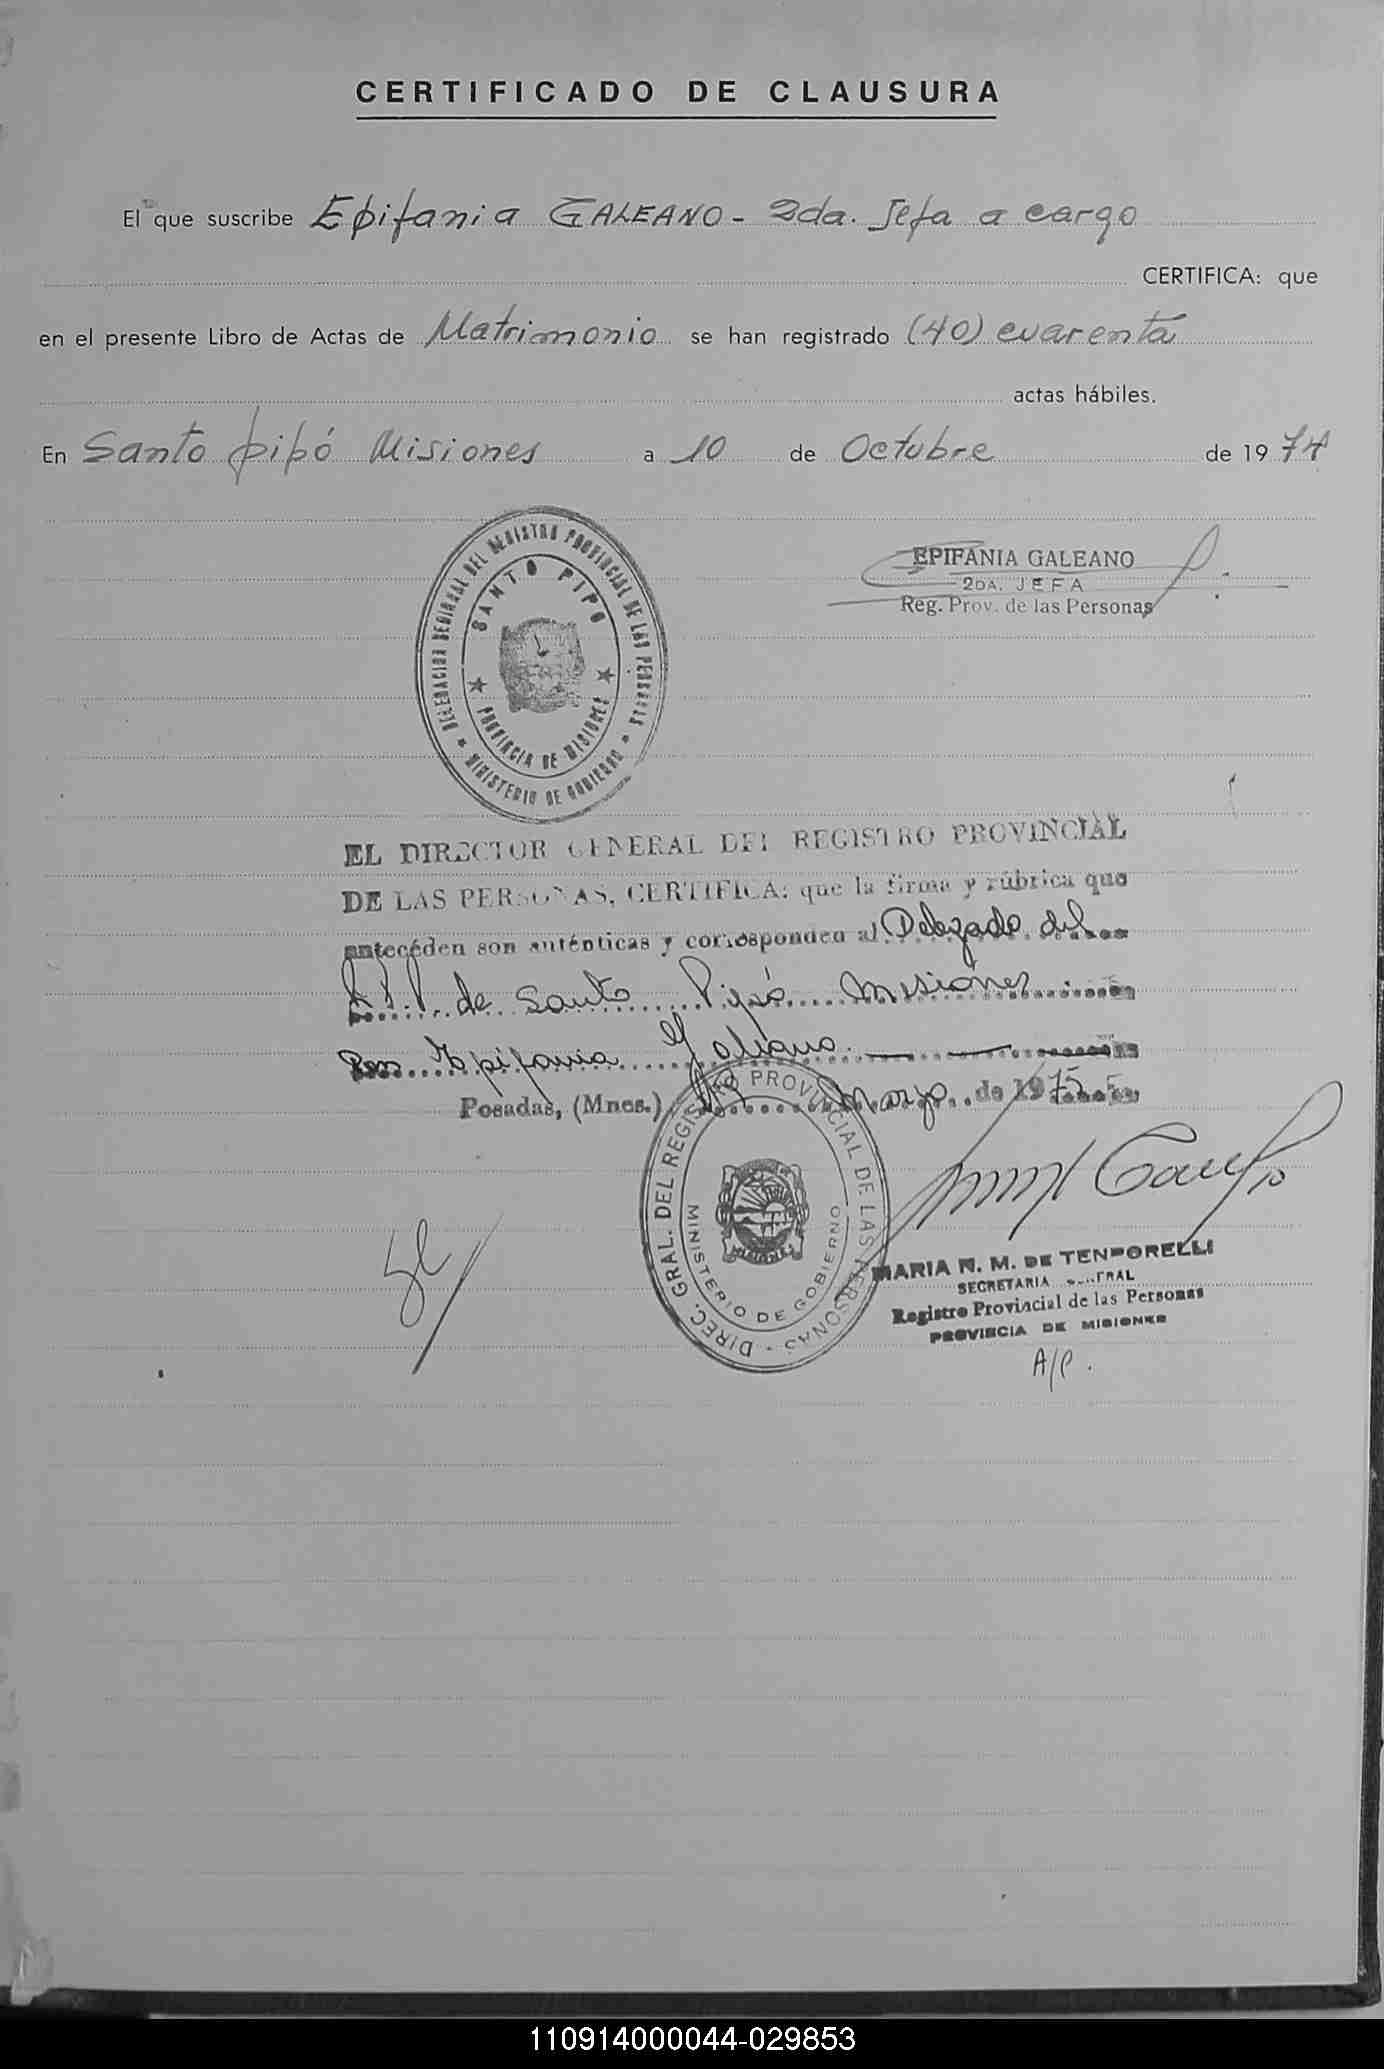 CERTIFICADO DE CLAUSURA
El que suscribe Epifania GALEANO - 2da. Jefa a cargo
CERTIFICA: que
en el presente Libro de Actas de Matrimonio se han registrado (40) cuarenta
actas hábiles.
En Santo Pipó Misiones a 10 de Octubre de 1974
DELEGACION REGIONAL DEL REGISTRO PROVINCIAL DE LAS PERSONAS
SANTO PIPO
PROVINCIA DE MISIONES
MINISTERIO DE GOBIERNO
EPIFANIA GALEANO
2DA. JEFA
Reg. Prov. de las Personas
EL DIRECTOR GENERAL DEL REGISTRO PROVINCIAL
DE LAS PERSONAS, CERTIFICA: que la firma y rúbrica que
antecéden son auténticas y corresponden al Delegado del
R.P.P. de Santo Pipó Misiones
Epifania Galeano
Posadas, (Mnes.) Marzo de 1975
DIREC. GRAL. DEL REGISTRO PROVINCIAL DE LAS PERSONAS
MINISTERIO DE GOBIERNO
MISIONES
MARIA N. M. DE TENPORELLI
SECRETARIA GENERAL
Registro Provincial de las Personas
PROVINCIA DE MISIONES
A/P.
110914000044-029853